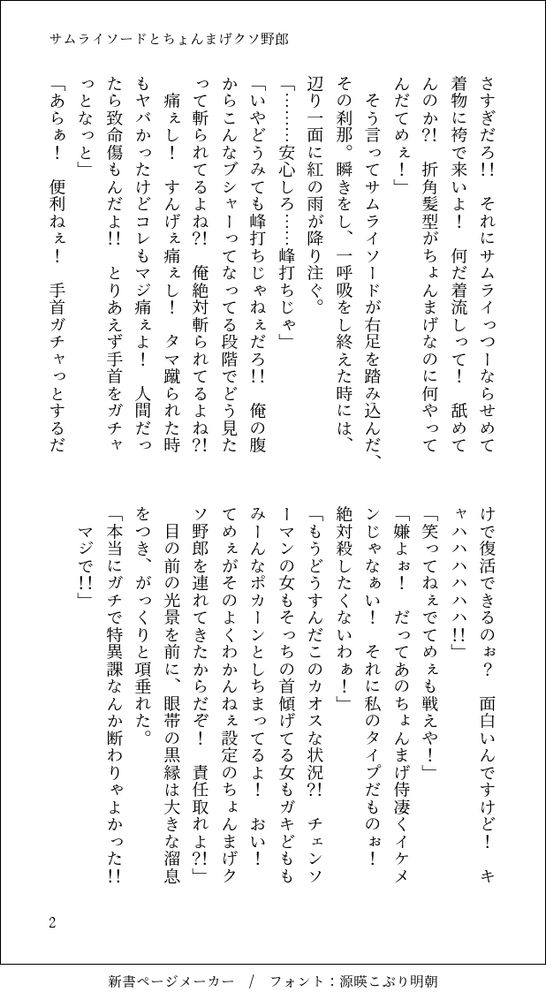 サムライソードとちょんまげクソ野郎
さすぎだろ!!　それにサムライっつーならせめて
着物に袴で来いよ！　何だ着流しって！　舐めて
んのか?!　折角髪型がちょんまげなのに何やって
んだてめぇ！」
　そう言ってサムライソードが右足を踏み込んだ、
その刹那。瞬きをし、一呼吸をし終えた時には、
辺り一面に紅の雨が降り注ぐ。
「………安心しろ……峰打ちじゃ」
「いやどうみても峰打ちじゃねぇだろ!!　俺の腹
からこんなブシャーってなってる段階でどう見た
って斬られてるよね?!　俺絶対斬られてるよね?!
　痛ぇし！　すんげぇ痛ぇし！　タマ蹴られた時
もヤバかったけどコレもマジ痛ぇよ！　人間だっ
たら致命傷もんだよ!!　とりあえず手首をガチャ
っとなっと」
「あらぁ！　便利ねぇ！　手首ガチャっとするだ
けで復活できるのぉ？　面白いんですけど！　キ
ャハハハハハハ!!」
「笑ってねぇでてめぇも戦えや！」
「嫌よぉ！　だってあのちょんまげ侍凄くイケメ
ンじゃなぁい！　それに私のタイプだものぉ！
絶対殺したくないわぁ！」
「もうどうすんだこのカオスな状況?!　チェンソ
ーマンの女もそっちの首傾げてる女もガキどもも
みーんなポカーンとしちまってるよ！　おい！
てめぇがそのよくわかんねぇ設定のちょんまげク
ソ野郎を連れてきたからだぞ！　責任取れよ?!」
　目の前の光景を前に、眼帯の黒縁は大きな溜息
をつき、がっくりと項垂れた。
「本当にガチで特異課なんか断わりゃよかった!!
　マジで!!」
2
新書ページメーカー　/　フォント：源暎こぶり明朝